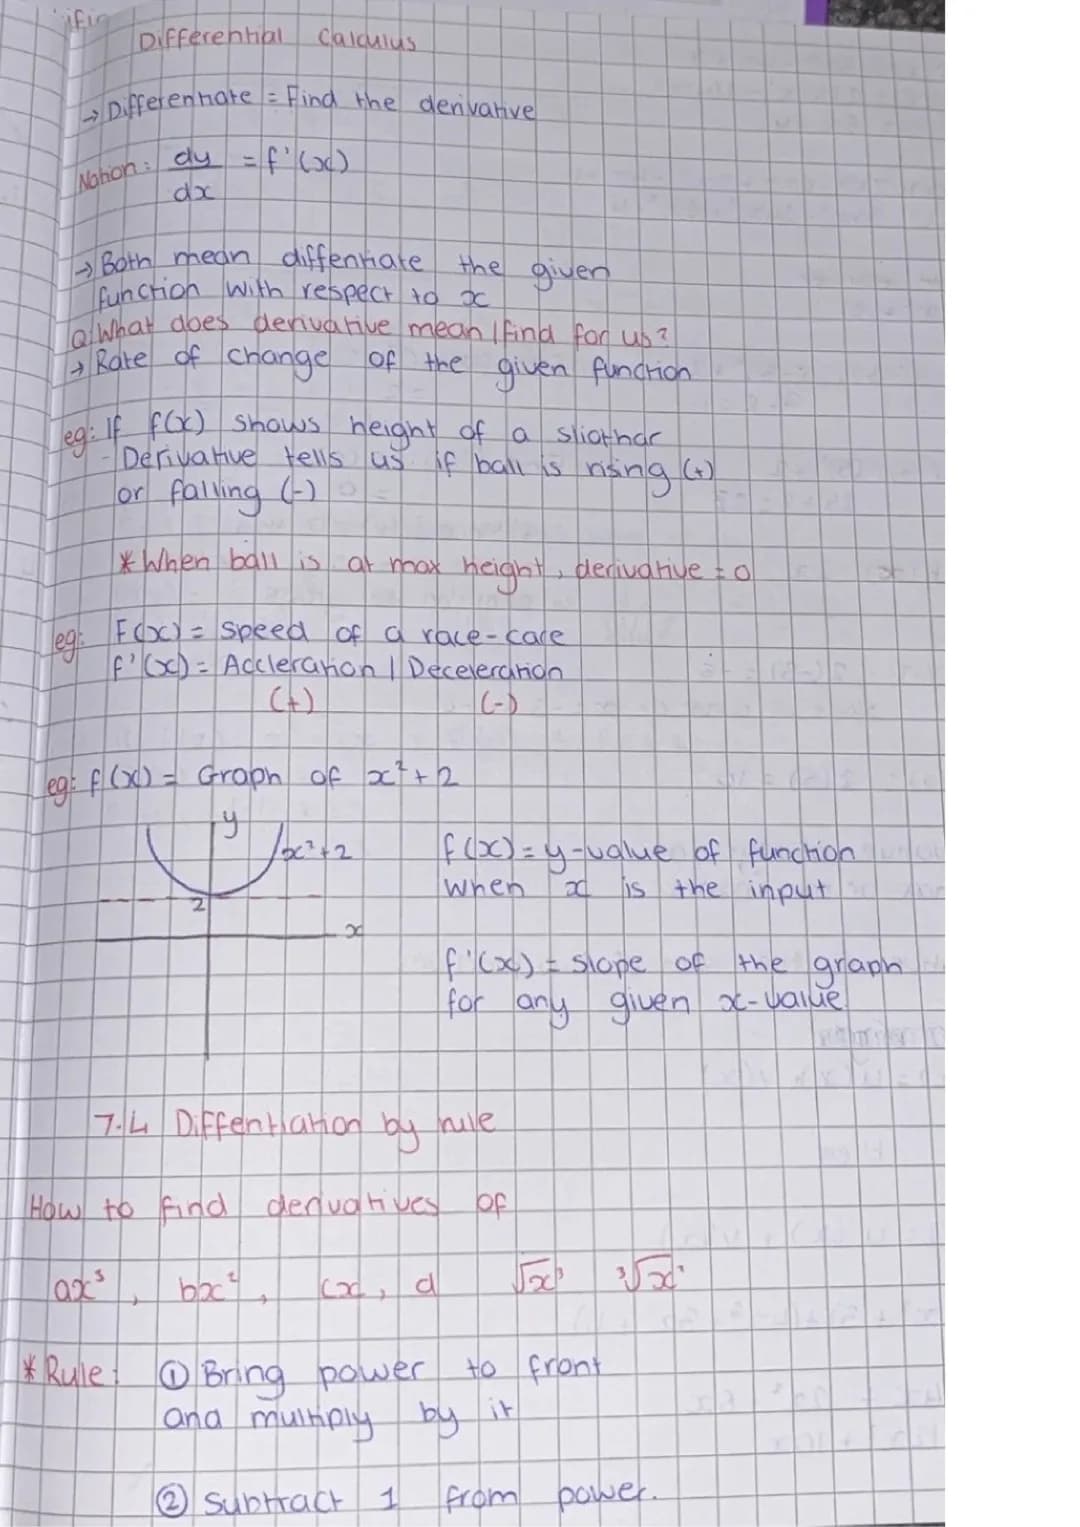 Differential Calculus
→ Differentiate = Find the derivative
Notion: dy/dx = f'(x)
→ Both mean diffentiate the given
function with respect to x
Q: What does derivative mean / find for us?
→ Rate of change of the given function
eg: If f(x) shows height of a sliothar
- Derivative tells us if ball is rising (+)
or falling (-)
* When ball is at max height, derivative = 0
eg: F(x) = speed of a race-care
f'(x) = Accleration / Deceleration
(+) (-)
eg: f(x) = Graph of x²+2
y
x²+2
2
x
f(x) = y-value of function
when x is the input
f'(x) = slope of the graph
for any given x-value
7.4 Diffentiation by rule
How to find derivatives of
ax³, bx², cx, d √x³ ³√x²
* Rule: ① Bring power to front
and multiply by it
② Subtract 1 from power.